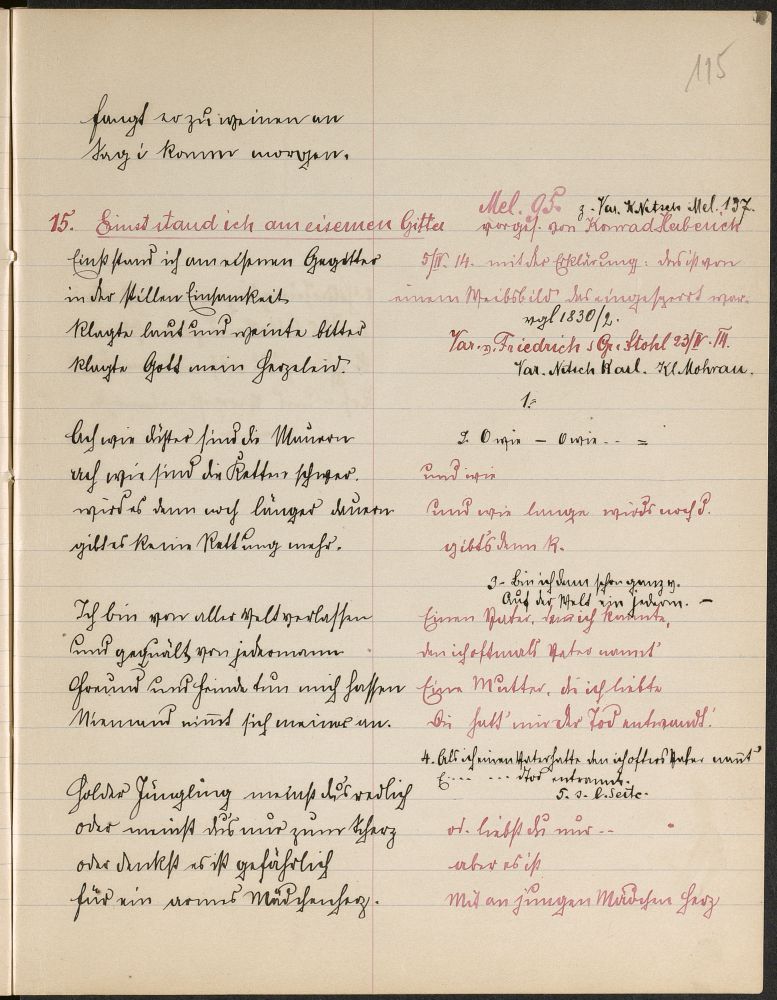 115
fangt er zu weinen an
Sag i komm morgen.
Mel. 95. z. Var. K. Netsch Mel. 137.
15. Einst stand ich am eisernen Gitter
vorges. von Konrad Haberich
Einst stand ich am eisernen Gegitter
5/IV. 14. mit der Erklärung: das ist von
in der stillen Einsamkeit
einem Weibsbild das eingesperrt war.
vgl 1830/2.
klagte laut und weinte bitter
Var. v. Friedrich s Gr. Stohl 23/IV. 14.
klagte Gott mein Herzeleid.
Var. Netsch Karl. Kl. Mohrau.
1.
Ach wie düster sind die Mauern
2. O wie — O wie - - =
ach wie sind die Ketten schwer.
und wie
wird es denn noch länger dauern
und wie lange wirds noch d.
gibt es keine Rettung mehr.
gibts denn k.
3 - Bin ich denn schon ganz v.
Auf der Welt ein jederm. —
Ich bin von aller Welt verlassen
Einen Vater, den ich kannte,
und gequält von jedermann
den ich oftmals Vater nannt'
Freund und Feinde tun mich hassen
Eine Mutter, die ich liebte
Niemand nimmt sich meiner an.
Die hatt' mir der Tod entwandt.
4. Als ich einen Vater hatte den ich öfters Vater nannt'
E - - - - - - Tod entrannt.
5. s. l. Seite.
Holder Jüngling meinst dus redlich
oder meinst dus nur zum Scherz
od. liebst du nur - -
oder denkst es ist gefährlich
aber es ist
für ein armes Mädchenherz.
Mit an jungen Mädchen Herz